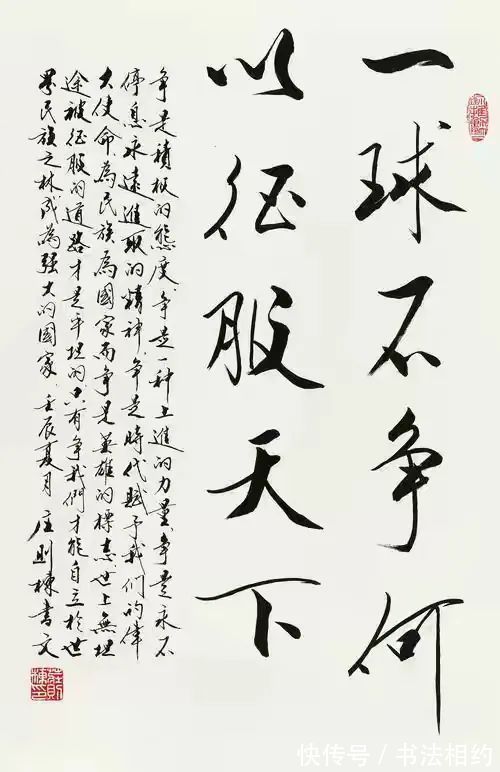 一球不争何
以征服天下
争是積极的態度争是一种上進的力量争是永不
停息永遠進取的精神争是時代賦予我们的偉
大使命為民族為國家而争是英雄的標志世上無坦
途被征服的道路才是平坦的只有争我們才能自立於世
界民族之林成為强大的國家 壬辰夏月 庄则棟書文
快传号/书法相约